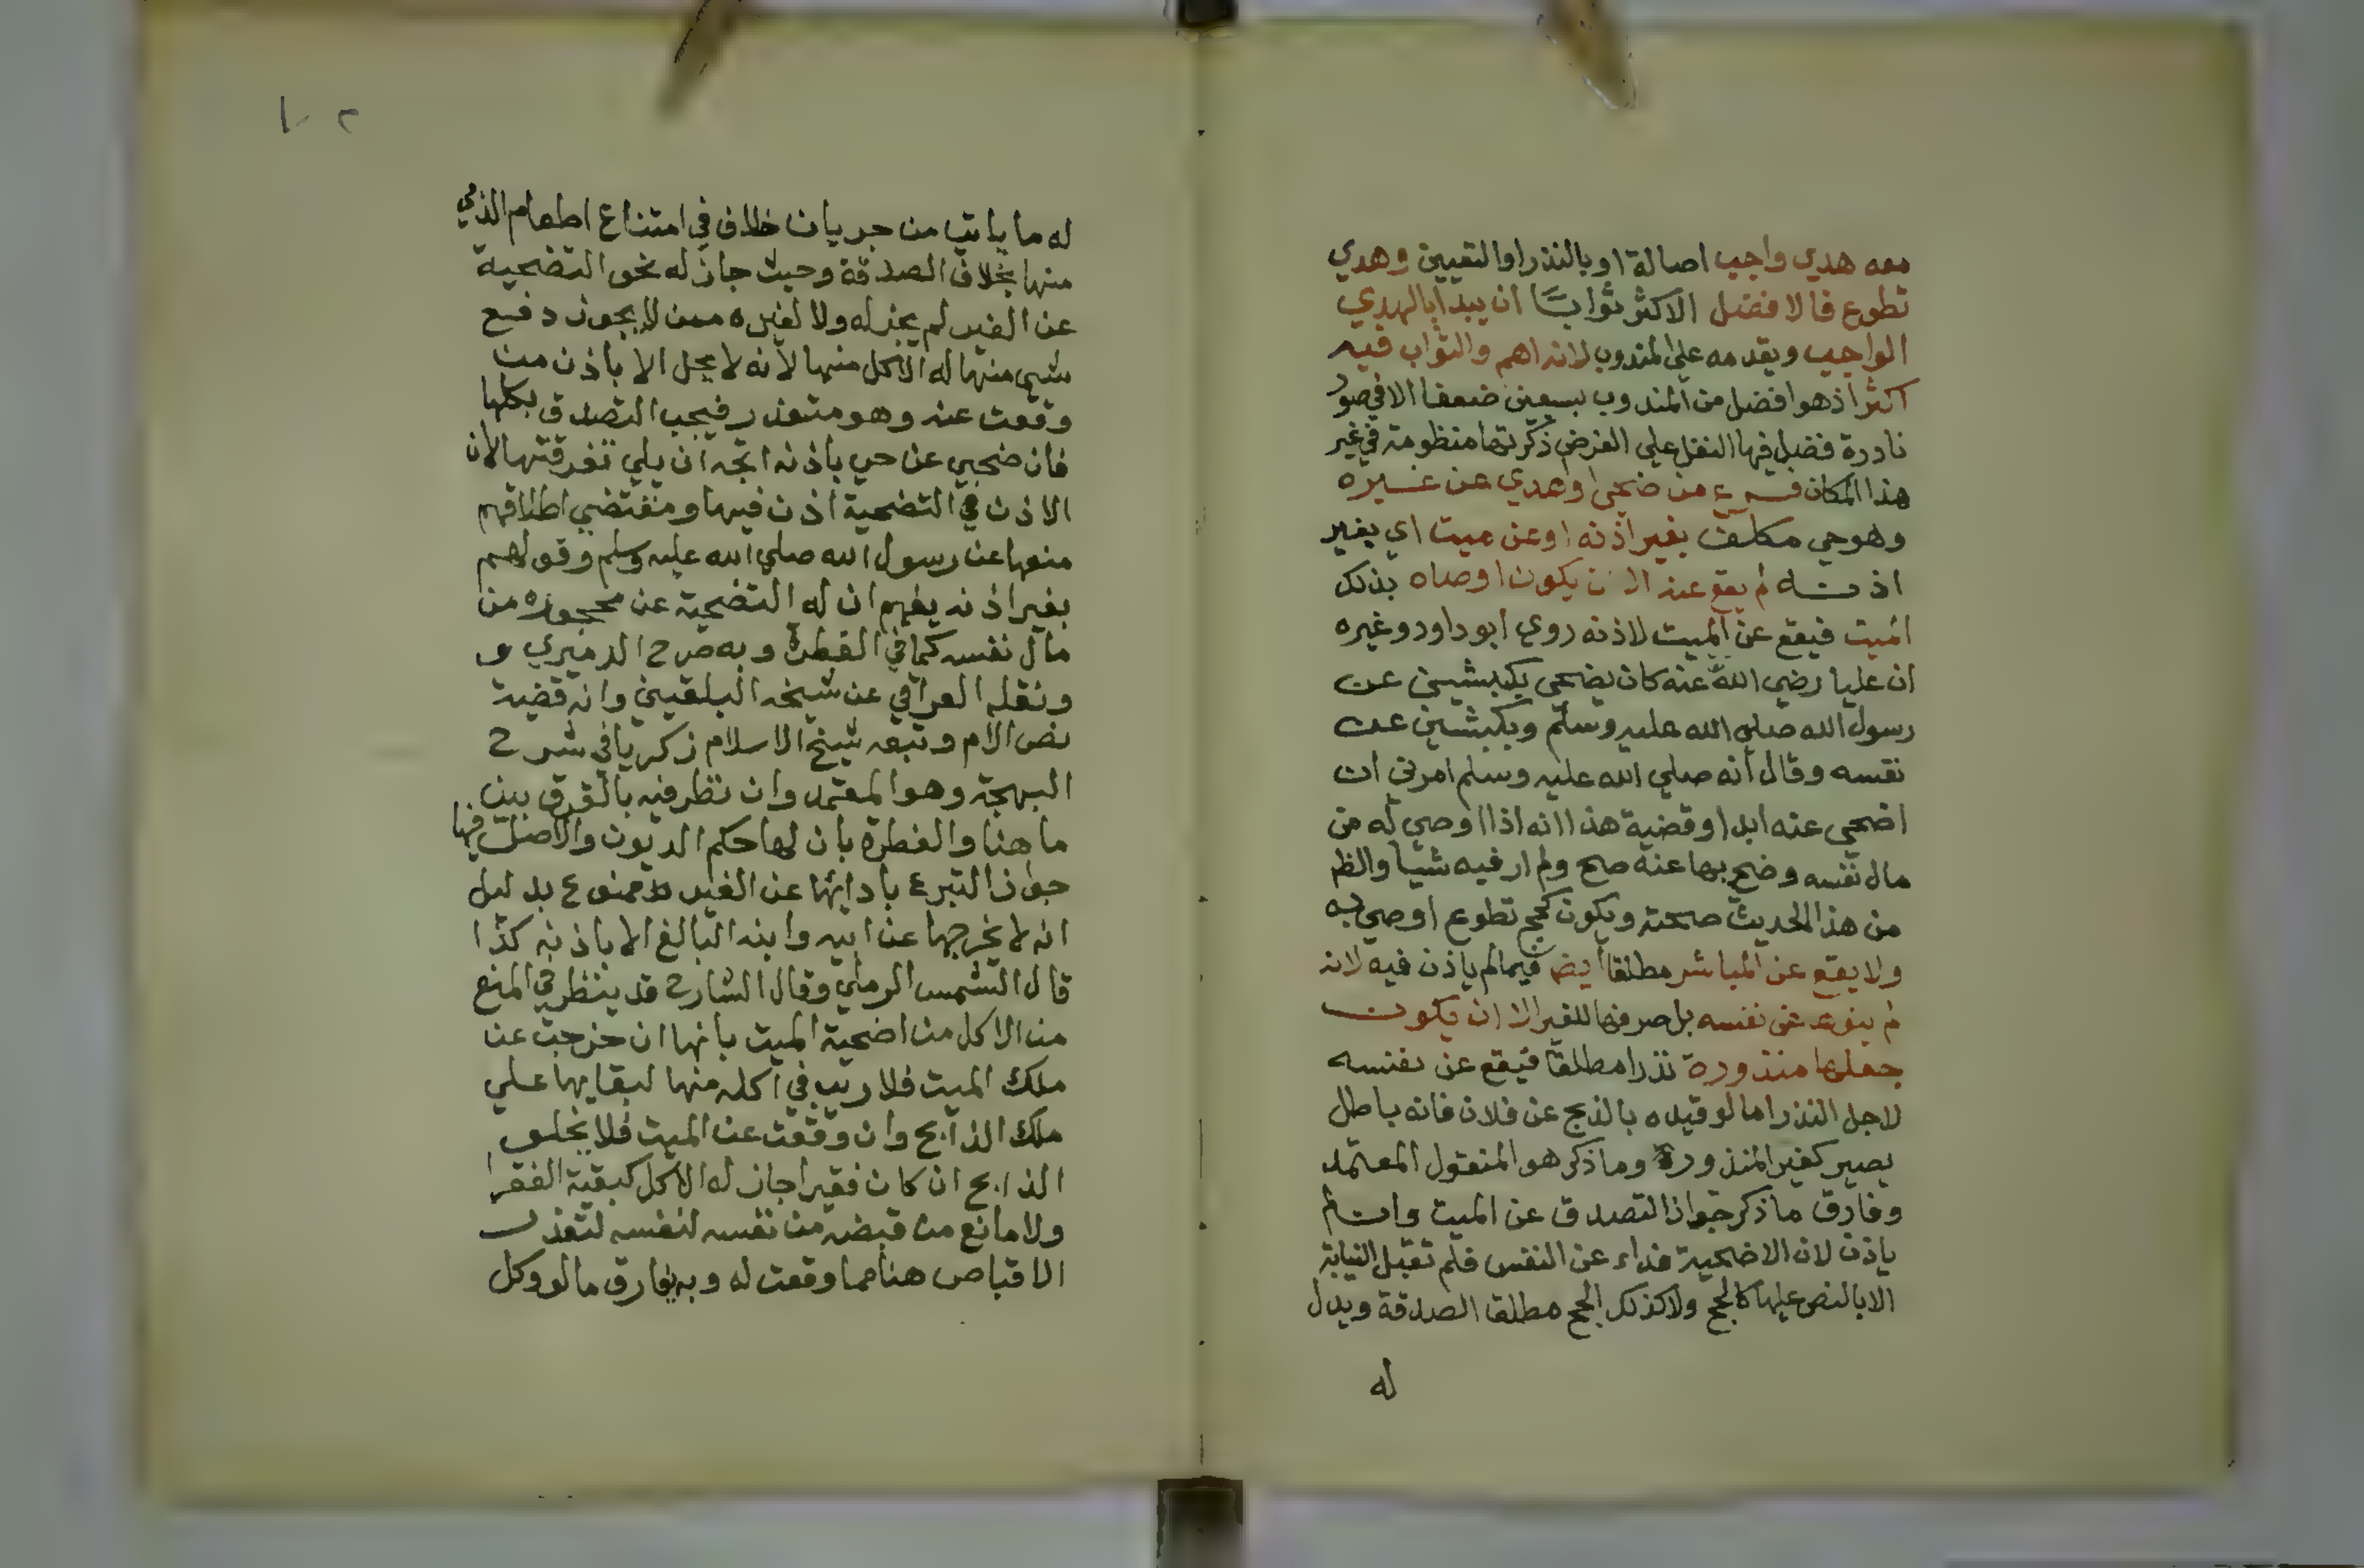 معه هدي واجب اصالة او بالنذر او التعيين وهدي
تطوع فالافضل الاكثر ثوابا ان يبدا بالهدي
الواجب ويقدمه علي المندوب لانه اهم والثواب فيه
اكثر اذ هو افضل من المندوب بسبعين ضعفا الا في صور
نادرة فضل فيها النفل علي الفرض ذكرتها منظومة في غير
هذا المكان فرع من ضحي او هدي عن غيره
وهو حي مكلف بغير اذنه او عن ميت اي بغير
اذنه لم يقع عنه الا ان يكون اوصاه بذلك
الميت فيقع عن الميت لاذنه روي ابو داود وغيره
ان عليا رضي الله عنه كان يضحي بكبشين عن
رسول الله صلي الله عليه وسلم وبكبشين عن
نفسه وقال انه صلي الله عليه وسلم امرني ان
اضحي عنه ابدا وقضية هذا انه اذا اوصي له من
مال نفسه وضحي بها عنه صح ولم ار فيه شيا والظ
من هذا الحديث صحته ويكون كحج تطوع اوصي به
ولا يقع عن المباشر مطلقا ايضا فيما لم ياذن فيه لانه
لم ينوه عن نفسه بل صرفها للغير الا ان يكون
جعلها منذورة نذرا مطلقا فيقع عن نفسه
لاجل النذر اما لو قيده بالذبح عن فلان فانه باطل
يصير كغير المنذورة وما ذكر هو المنقول المعتمد
وفارق ما ذكر جواز التصدق عن الميت وان لم
ياذن لان الاضحية فداء عن النفس فلم تقبل النيابة
الا بالنص عليها كالحج ولا كذلك الحج مطلقا الصدقة ويدل
له
١٠٢
له ما ياتي من جريان خلاف في امتناع اطعام الذمي
منها بخلاف الصدقة وحيث جاز له نحو التضحية
عن الغير لم يجز له ولا لغيره ممن لا يجوز دفع
شي منها له الاكل منها لانه لا يحل الا باذن من
وقعت عنه وهو متعذر فيجب التصدق بكلها
فان ضحي عن حي باذنه اتجه ان يلي تفرقتها لان
الاذن في التضحية اذن فيها ومقتضي اطلاقهم
منعها عن رسول الله صلي الله عليه وسلم وقولهم
بغير اذنه يفهم ان له التضحية عن محجوره من
مال نفسه كما في الفطرة وبه صرح الدميري و
ونقله العراقي عن شيخه البلقيني وانه قضية
نص الام وتبعه شيخ الاسلام زكريا في شرح
البهجة وهو المعتمد وان نظر فيه بالفرق بين
ما هنا والفطرة بان لها حكم الديون والاصل فيها
جواز التبرع بادائها عن الغير ممنوع بدليل
انه لا يخرجها عن ابيه وابنه البالغ الا باذنه كذا
قال الشمس الرملي وقال الشارح قد ينظر في المنع
من الاكل من اضحية الميت بانها ان خرجت عن
ملك الميت فلا ريب في اكله منها لبقايها علي
ملك الذابح وان وقعت عن الميت فلا يخلو
الذابح ان كان فقيرا جاز له الاكل كبقية الفقرا
ولا مانع من قبضه من نفسه لنفسه لتعذر
الاقباض هنا مما وقعت له وبه يفارق ما لو وكل